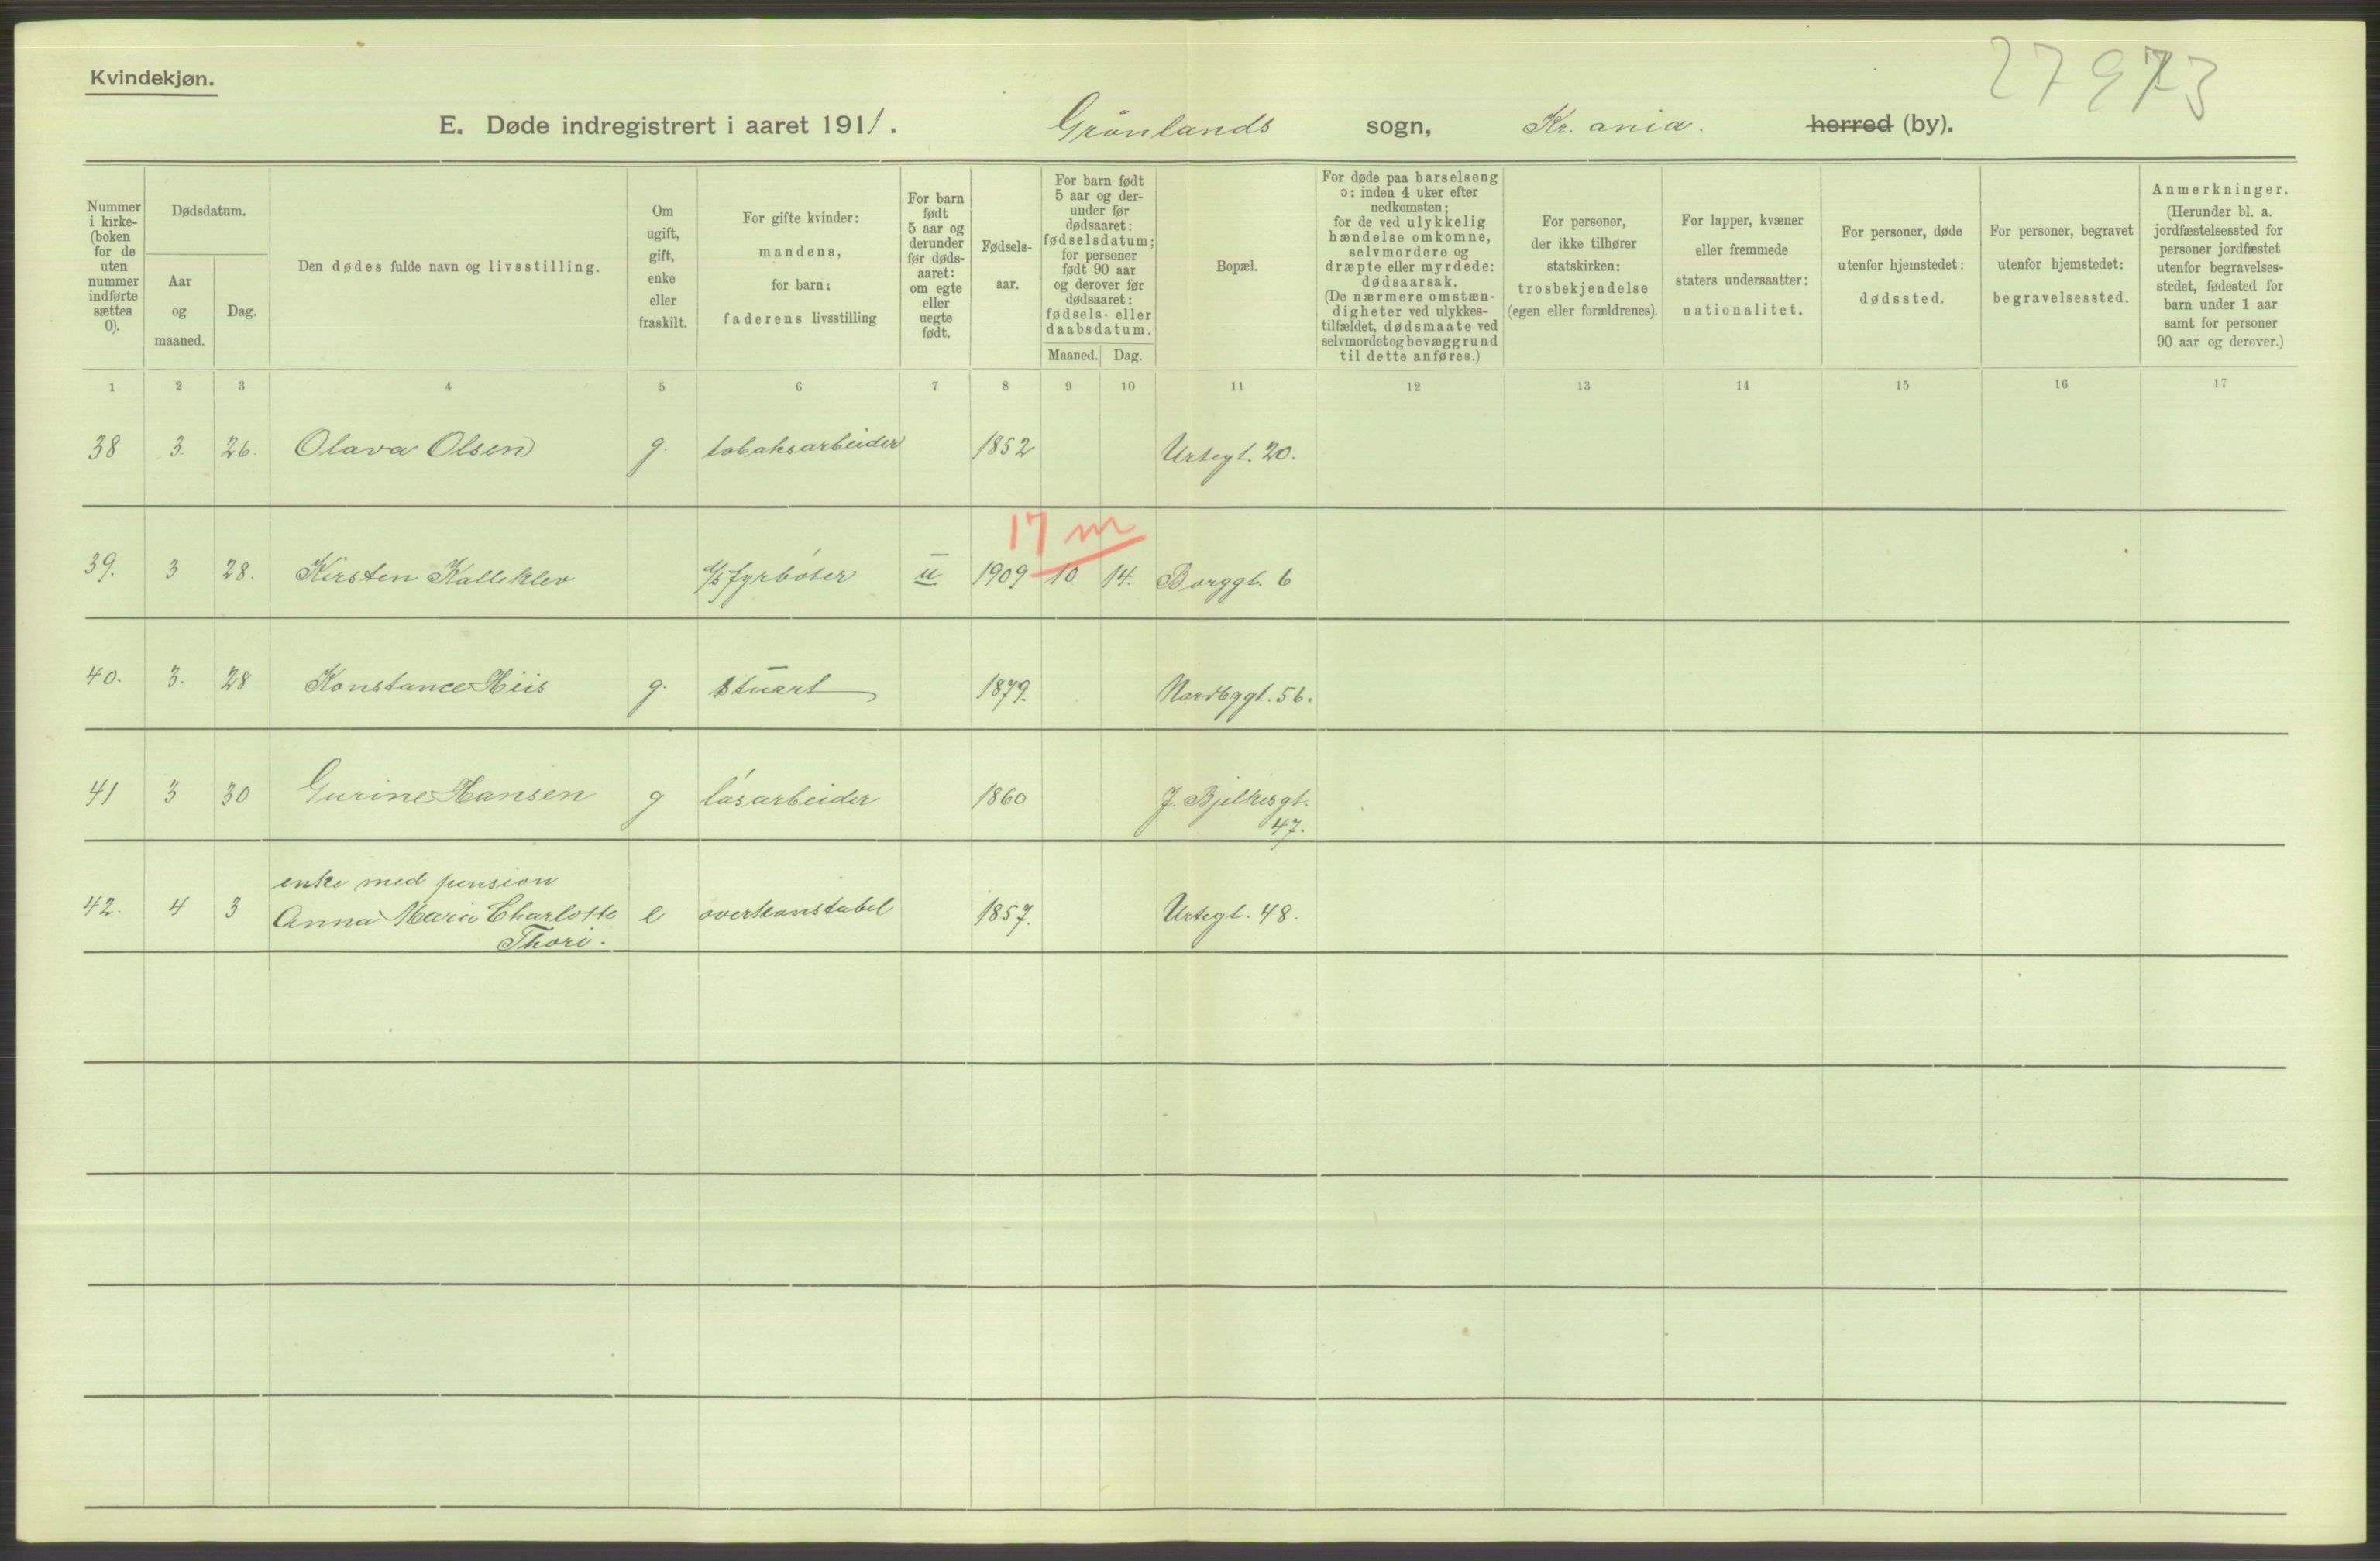 27973
Kvindekjøn.
E. Døde indregistrert i aaret 1911. Grönlands sogn, Kr. ania. herred (by).
Nummer i kirke-(boken for de uten nummer indførte sættes 0).
Dødsdatum.
Aar og maaned.
Dag.
Den dødes fulde navn og livsstilling.
Om ugift, gift, enke eller fraskilt.
For gifte kvinder: mandens, for barn: faderens livsstilling
For barn født 5 aar og derunder før døds-aaret: om egte eller uegte født.
Fødsels-aar.
For barn født 5 aar og der-under før dødsaaret: fødselsdatum; for personer født 90 aar og derover før dødsaaret: fødsels- eller daabsdatum.
Maaned. Dag.
Bopæl.
For døde paa barselseng ɔ: inden 4 uker efter nedkomsten; for de ved ulykkelig hændelse omkomne, selvmordere og dræpte eller myrdede: dødsaarsak. (De nærmere omstæn-digheter ved ulykkes-tilfældet, dødsmaate ved selvmordet og bevæggrund til dette anføres.)
For personer, der ikke tilhører statskirken: trosbekjendelse (egen eller forældrenes).
For lapper, kvæner eller fremmede staters undersaatter: nationalitet.
For personer, døde utenfor hjemstedet: dødssted.
For personer, begravet utenfor hjemstedet: begravelsessted.
Anmerkninger. (Herunder bl. a. jordfæstelsessted for personer jordfæstet utenfor begravelses-stedet, fødested for barn under 1 aar samt for personer 90 aar og derover.)
1 2 3 4 5 6 7 8 9 10 11 12 13 14 15 16 17
38 3. 26. Olava Olsen g. tobaksarbeider 1852 Urtegt. 20.
17 m
39. 3 28. Kirsten Kalleklev fyrböter u 1909 10 14. Borggt. 6
40. 3. 28 Konstance Hiis g. stuert 1879. Nordbygt. 56.
41 3 30 Gurine Hansen g løsarbeider 1860 J. Bjelkesgt.
47.
enke med pension
42. 4 3 Anna Marie Charlotte e overkonstabel 1857. Urtegt. 48.
Thori.